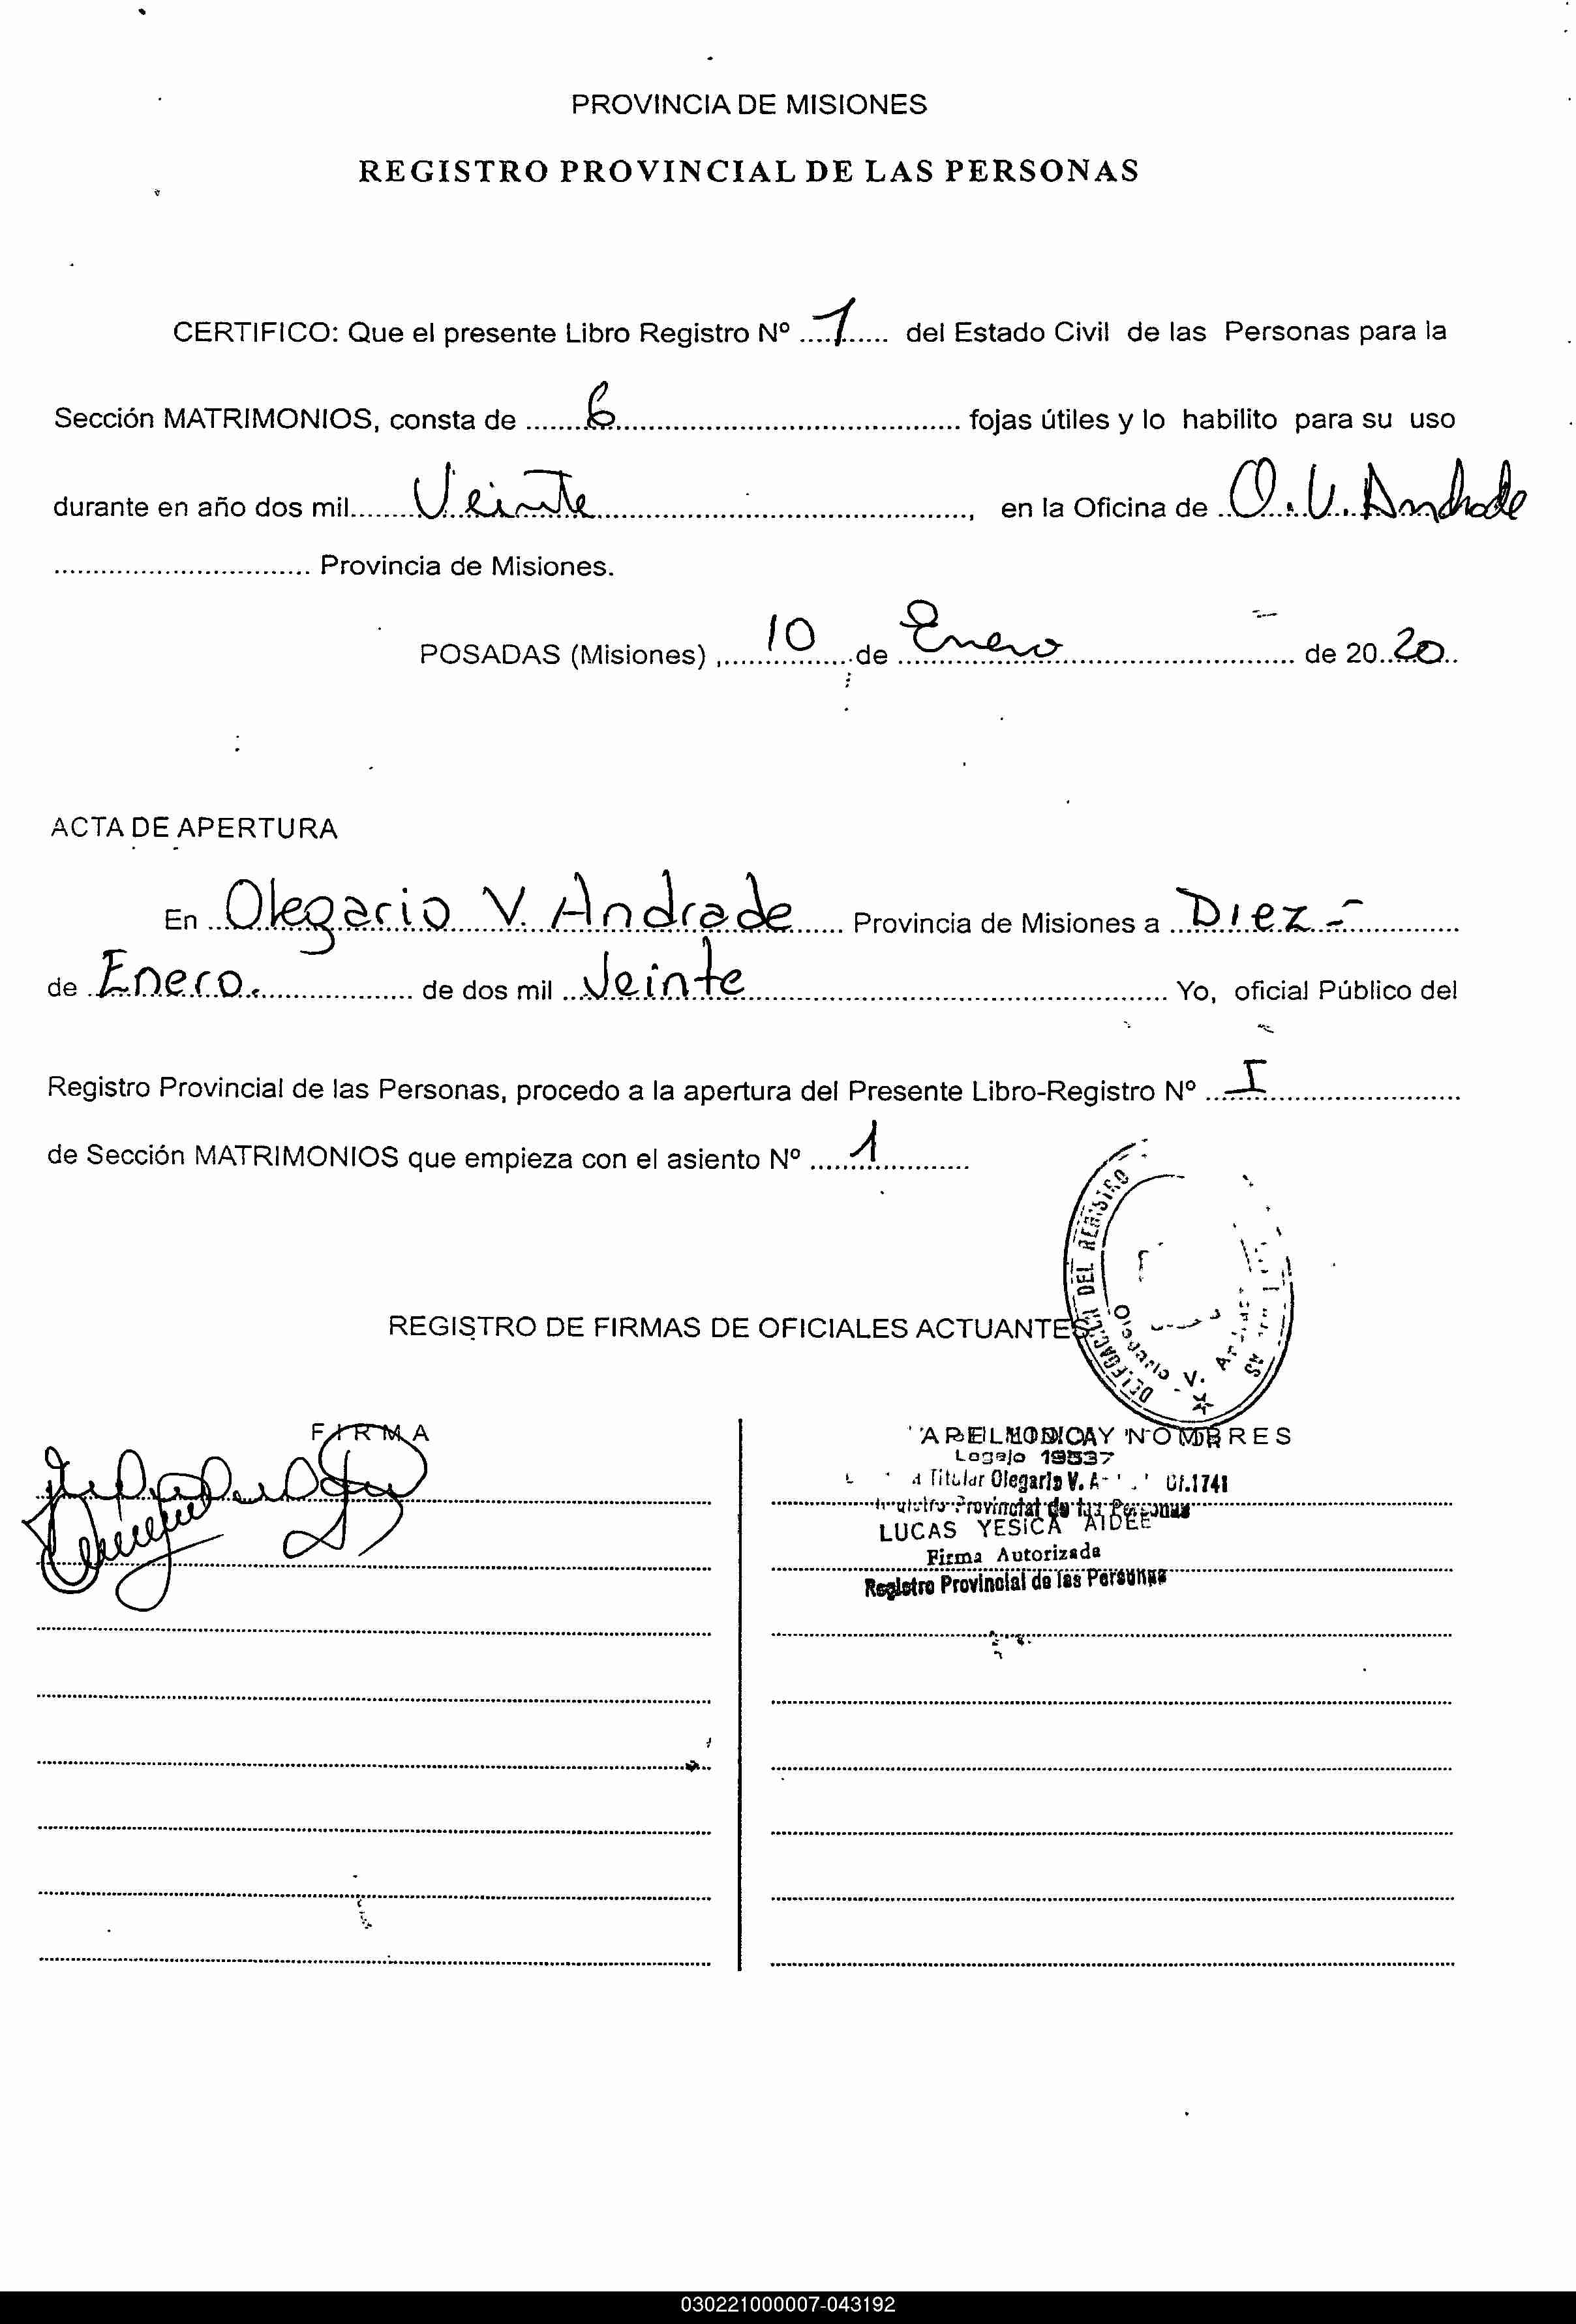 PROVINCIA DE MISIONES
REGISTRO PROVINCIAL DE LAS PERSONAS
CERTIFICO: Que el presente Libro Registro Nº ....1...... del Estado Civil de las Personas para la
Sección MATRIMONIOS, consta de .......6.......... fojas útiles y lo habilito para su uso
durante en año dos mil........Veinte.........., en la Oficina de ..O.V. Andrade
.......... Provincia de Misiones.
POSADAS (Misiones) ,.....10.....de ....Enero.......... de 20..20..
ACTA DE APERTURA
En ...Olegario V. Andrade...... Provincia de Misiones a ...Diez.-..........
de ..Enero........... de dos mil ...Veinte.......... Yo, oficial Público del
Registro Provincial de las Personas, procedo a la apertura del Presente Libro-Registro Nº ...I..........
de Sección MATRIMONIOS que empieza con el asiento Nº .....1..........
DELEGACION DEL REGISTRO
Olegario V.
REGISTRO DE FIRMAS DE OFICIALES ACTUANTES
FIRMA
APELLIDO Y NOMBRES
Legajo 19537
Titular Olegario V. Of.1741
Registro Provincial de las Personas
LUCAS YESICA AIDEE
Firma Autorizada
Registro Provincial de las Personas
030221000007-043192